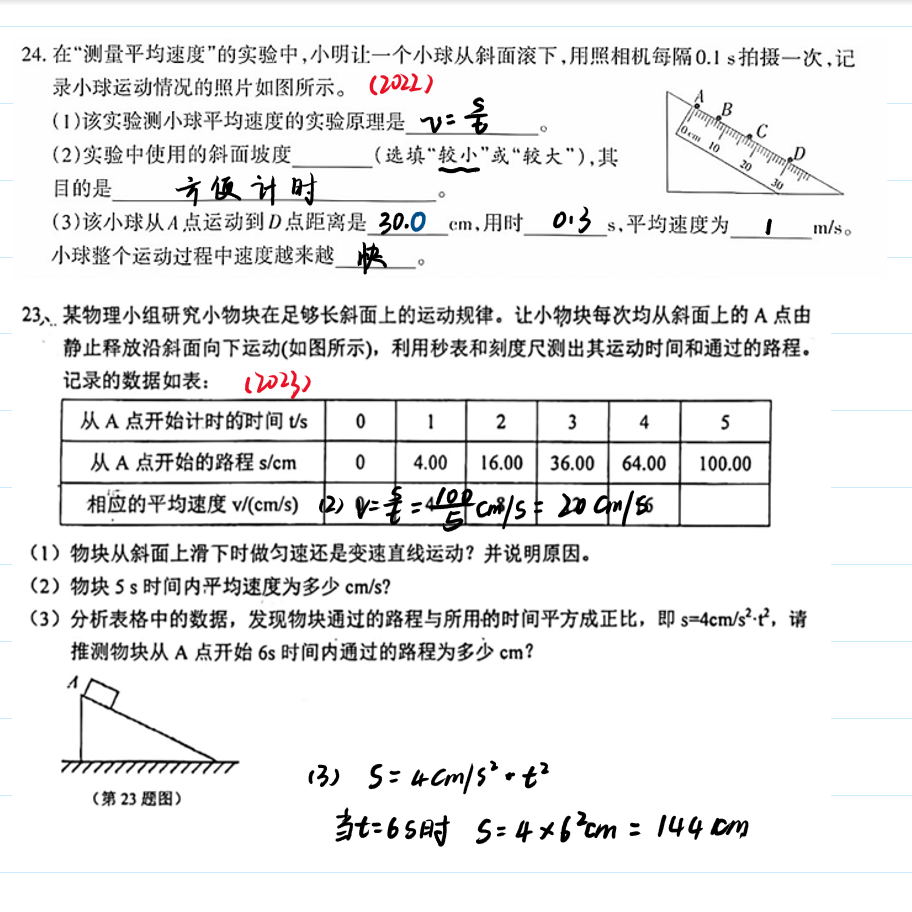 24. 在“测量平均速度”的实验中,小明让一个小球从斜面滚下,用照相机每隔0.1 s拍摄一次,记
录小球运动情况的照片如图所示。 (2022)
(1)该实验测小球平均速度的实验原理是 v=s/t 。
(2)实验中使用的斜面坡度______(选填“较小”或“较大”),其
目的是 方便计时 。
(3)该小球从A点运动到D点距离是 30.0 cm,用时 0.3 s,平均速度为 1 m/s。
小球整个运动过程中速度越来越 快 。
A
B
C
D
0cm 10 20 30
23、 某物理小组研究小物块在足够长斜面上的运动规律。让小物块每次均从斜面上的 A 点由
静止释放沿斜面向下运动(如图所示),利用秒表和刻度尺测出其运动时间和通过的路程。
记录的数据如表: (2023)
从 A 点开始计时的时间 t/s 0 1 2 3 4 5
从 A 点开始的路程 s/cm 0 4.00 16.00 36.00 64.00 100.00
相应的平均速度 v/(cm/s) (2) v=s/t=100/5 cm/s=20cm/s
(1)物块从斜面上滑下时做匀速还是变速直线运动?并说明原因。
(2)物块 5 s 时间内平均速度为多少 cm/s?
(3)分析表格中的数据,发现物块通过的路程与所用的时间平方成正比,即 s=4cm/s²·t²,请
推测物块从 A 点开始 6s 时间内通过的路程为多少 cm?
A
(第 23 题图)
(3) S=4cm/s²·t²
当t=6s时 S=4×6²cm=144cm